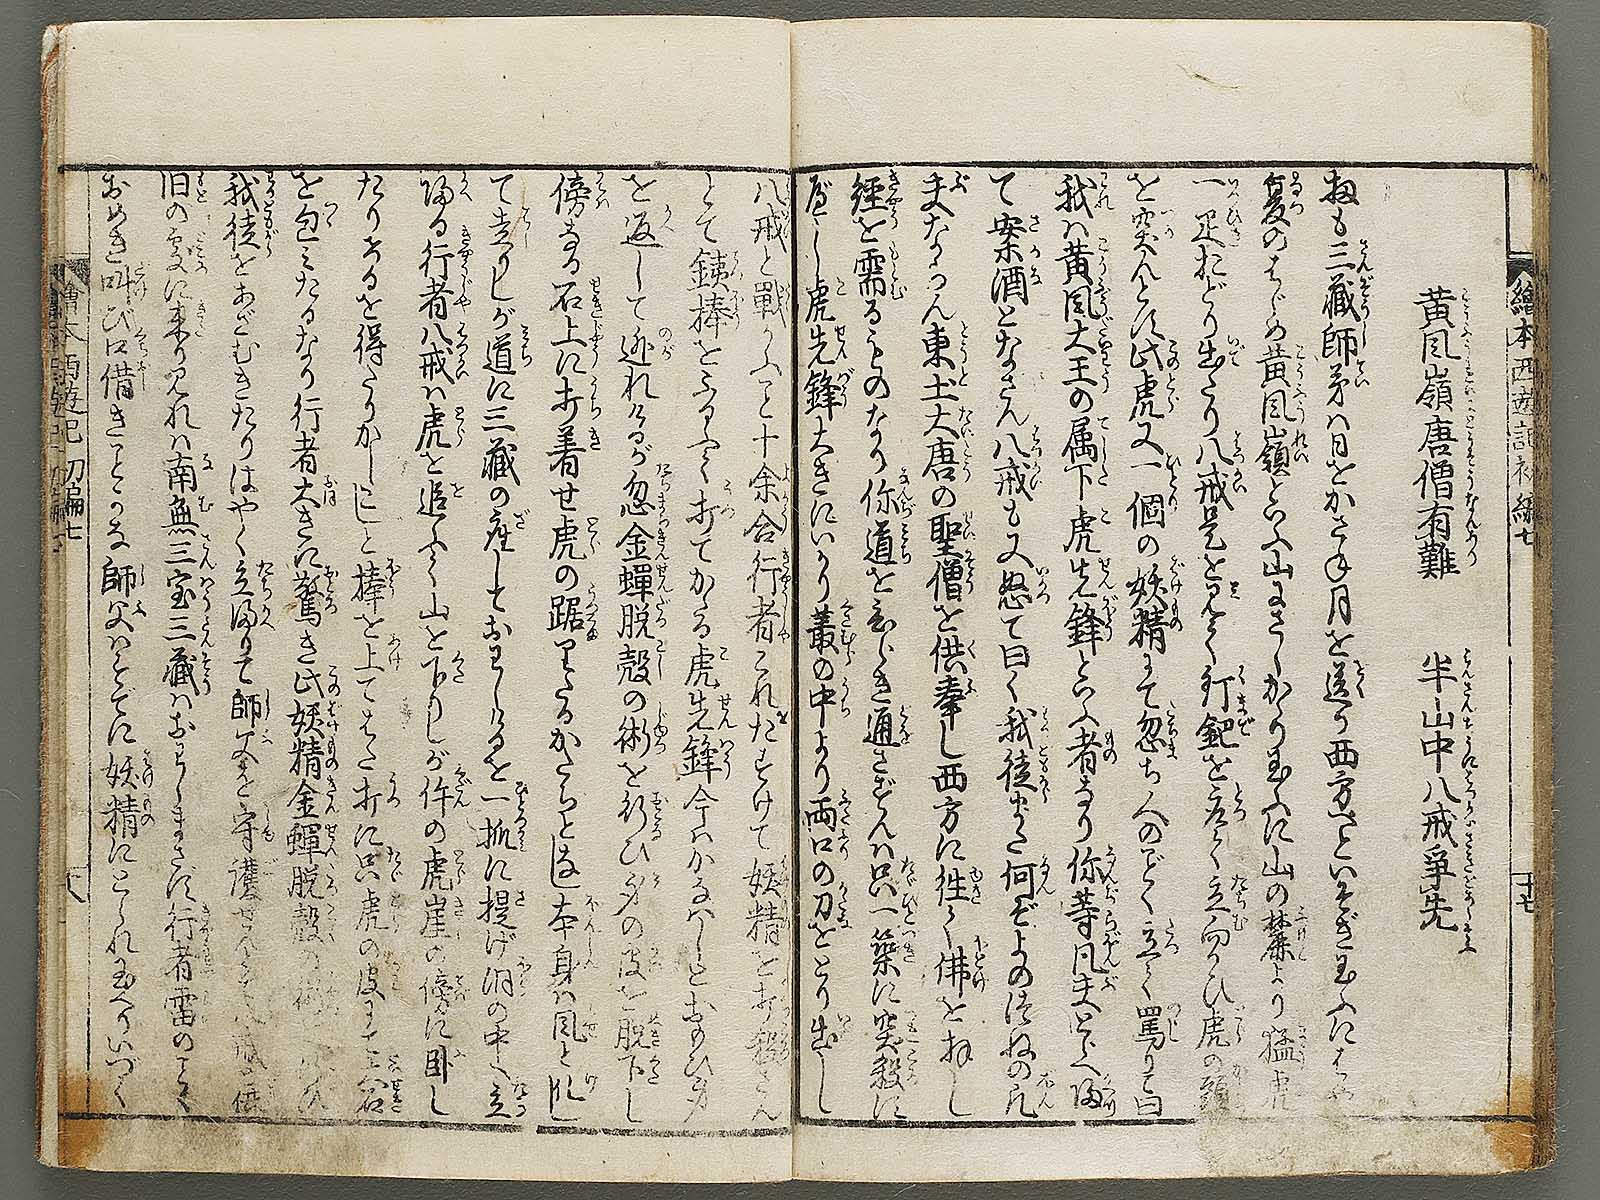 繪本西遊記初編七
十七
黄風嶺唐僧有難　半山中八戒爭先
扨も三藏師弟ハ日をかさね月を送り西方へといそぎ玉ふにはや
夏のはじめ黄風嶺といふ山にさしかゝり玉ふに山の麓より猛虎
一疋おどり出たり八戒是を見て釘鈀を
を突んとす此虎又一個の妖精にて忽ち人のごとく立て罵りて曰
我ハ黄風大王の属下虎先鋒といふ者なり你等凡夫
て案酒となさん八戒も又怒て曰く我徒
夫ならん東土大唐の聖僧を供奉し西方に往て佛を拝し
經を需るものなり你道をひらき通さずんハ只一築に突殺に
べし虎先鋒大きにいかり叢の中より両口の刀をとり出し
八戒と戰ふこと十余合行者これをたすけて妖精を打殺さん
とて鉄棒をふるつて打てかゝる虎先鋒今ハかなハじとおもひ身
を返して逃れけるが忽金蟬脱殻の術を行ひ身の皮を脱下し
傍なる石上に打着せ虎の踞りたるかたちとなし本身ハ風と化し
て走りしが道に三藏の座しておわしけるを一抓に提げ洞の中へ立
歸る行者八戒ハ虎を追ふて山を下りしが件の虎崖の傍に臥し
たりけるを得たりかしこしと棒を上てはたと打に只虎の皮にて石
を包ミたるなり行者大きに驚き此妖精金蟬脱殻の
我徒をあざむきたりはやく立歸りて師父を守護せんとて八戒
旧の處に来り見れハ南無三宝三藏ハおわしまさず行者雷のごとく
おめき叫び口惜きことかな師父ハすでに妖精にとられ玉へりいづく
繪本西遊記初編七